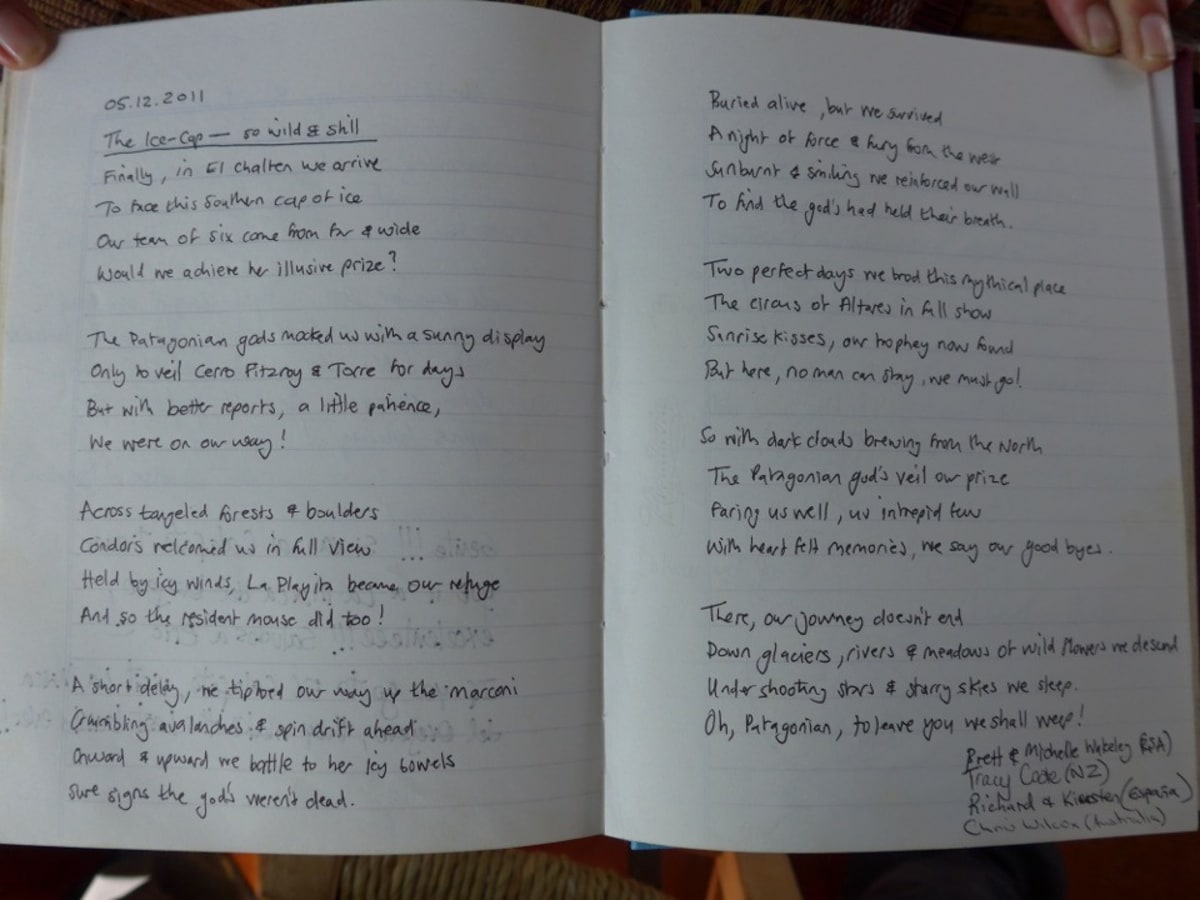 05.12.2011
The Ice-Cap — so wild & still
Finally, in El Chalten we arrive
To face this Southern cap of ice
Our team of six come from far & wide
Would we achieve her illusive prize?
The Patagonian gods mocked us with a sunny display
Only to veil Cerro Fitzroy & Torre for days
But with better reports, a little patience,
We were on our way!
Across tangeled forests & boulders
Condors welcomed us in full view
Held by icy winds, La Playita became our refuge
And so the resident mouse did too!
A short delay, we tiptoed our way up the marconi
Crumbling avalanches & spin drift ahead
Onward & upward we battle to her icy bowels
Sure signs the god's weren't dead.
Buried alive, but we survived
A night of force & fury from the west
Sunburnt & smiling we reinforced our wall
To find the god's had held their breath.
Two perfect days we trod this mythical place
The circus of Altares in full show
Sunrise kisses, our trophey now found
But here, no man can stay, we must go!
So with dark clouds brewing from the North
The Patagonian god's veil our prize
Faring us well, us intrepid few
With heart felt memories, we say our good byes.
There, our journey doesn't end
Down glaciers, rivers & meadows of wild flowers we descend
Under shooting stars & starry skies we sleep.
Oh, Patagonian, to leave you we shall weep!
Brett & Michelle Wakeley (RSA)
Tracy (NZ)
Richard & (España)
Chris Wilcox (Australia)